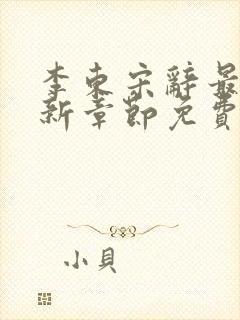 李東宋辭最
新章節免費
小貝